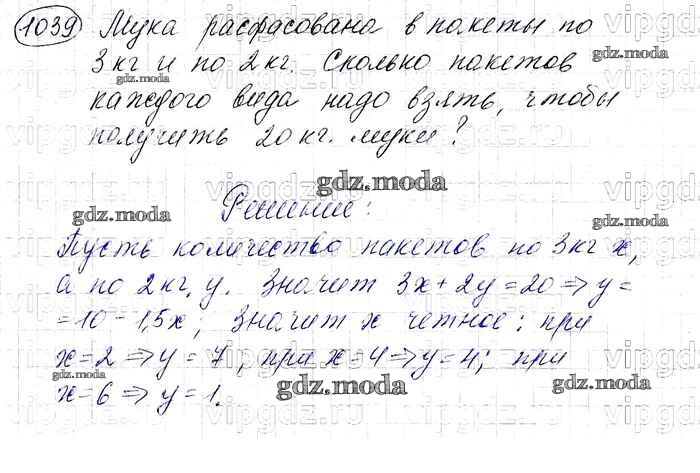 1039 Мука расфасована в пакеты по
3 кг и по 2 кг. Сколько пакетов
каждого вида надо взять, чтобы
получить 20 кг. муки?
Решение:
Пусть количество пакетов по 3 кг x,
а по 2 кг, y. Значит 3x + 2y = 20 => y =
= 10 - 1,5x, Значит x четное: при
x = 2 => y = 7, при x = 4 => y = 4; при
x = 6 => y = 1.
gdz.moda
gdz.moda
gdz.moda
gdz.moda
gdz.moda
gdz.moda
gdz.moda
gdz.moda
gdz.moda